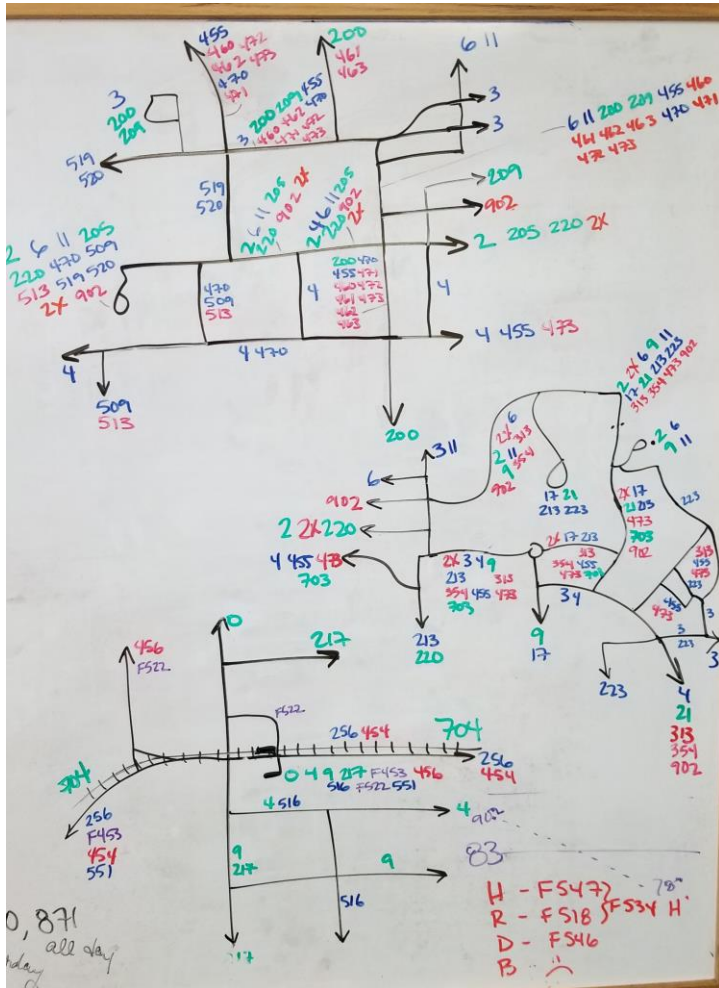 455
460 472
462 473
470
471
200
461
463
6 11
3
200
209
3 200 209 455
460 462 470
471 472
473
3
3
6 11 200 209 455 460
461 462 463 470 471
472 473
519
520
519
520
2 6 11 205
220 902 2X
2 4 6 11 205
220 902
2X
209
902
2 205 220 2X
2 6 11 205
220 470 509
513 519 520
2X 902
470
509
513
4
200 470
455 471
460 472
461 473
462
463
4
4
4 470
4 455 473
509
513
200
2 2X 6 9 11
17 21 213 223
313 354 473 902
2 6
9 11
3 11
6
2X 6
313
2 11
9 354
902
17 21
213 223
2X 17
21 213
473
703
902
223
902
2 2X 220
4 455 473
703
2X 3 4 9
213 313
354 455 473
703
2X 17 213
313
354 455
473 703
313
455
473
223
455
473
3 4
3
3
223
3
213
220
9
17
223
4
21
313
354
902
0
217
456
F522
F522
256 454
704
704
256
454
0 4 9 217 F453 456
516 F522 551
256
F453
454
551
4 516
4
902
9
217
9
516
217
83
78
H - F547
R - F518
F534 H
D - F546
B -
0, 871
all day